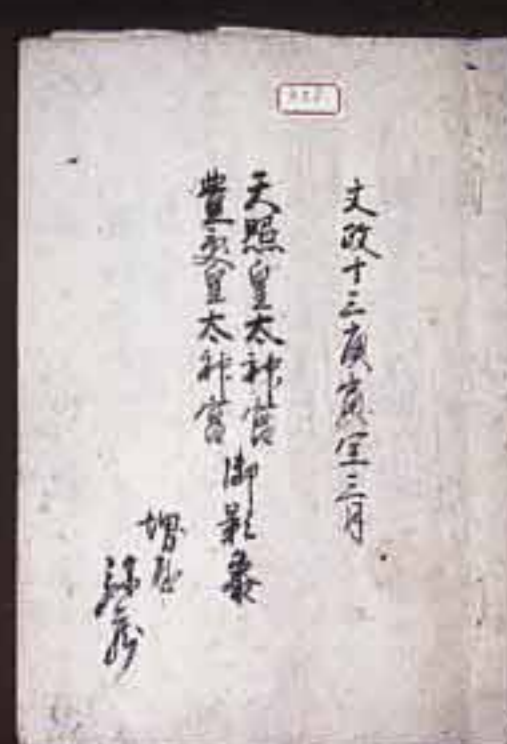 文政十三庚寅年三月
天照皇太神宮
豊受皇太神宮
御影参
堺屋